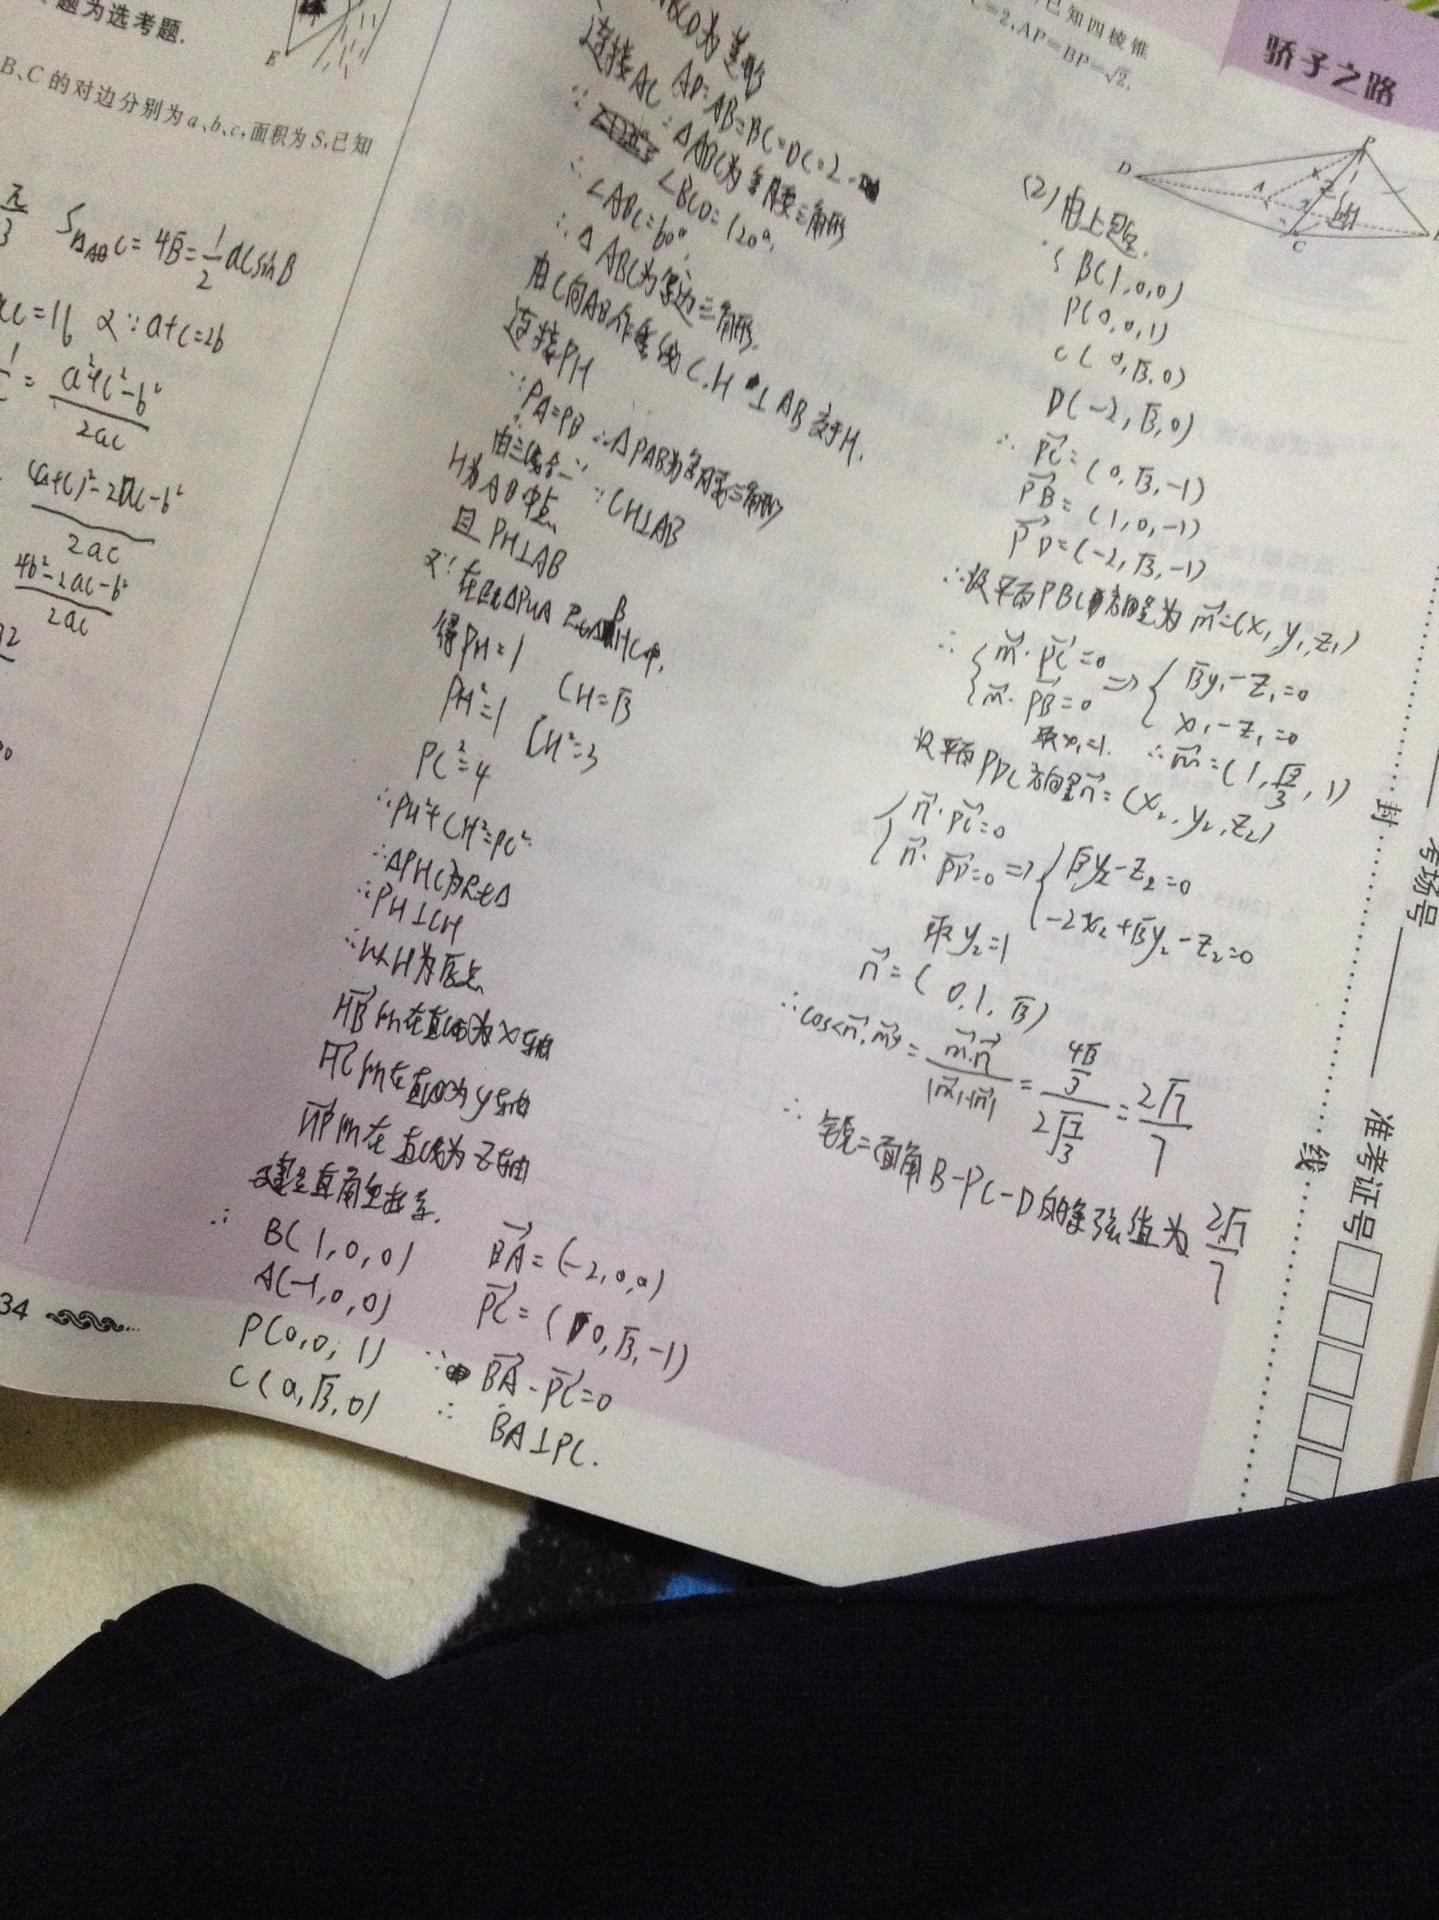 题为选考题.
E
B、C 的对边分别为 a、b、c,面积为 S,已知
π/3 S△ABC = 4√3 = 1/2 acsinB
ac=16 又∵a+c=2b
= a²+c²-b² / 2ac
(a+c)²-2ac-b² / 2ac
4b²-2ac-b² / 2ac
34
ABCD为菱形
AD=AB=BC=DC=2
连接AC ∴△ABC为等腰三角形
∵ ∠BCD=120°
∴∠ABC=60°
∴△ABC为等边三角形.
由C向AB作垂线 C.H⊥AB交于H.
连接PH
∵PA=PB ∴△PAB为等腰三角形
由三线合一 ∵CH⊥AB
H为AB中点
且PH⊥AB
得PH=1 CH=√3
PH²=1 CH²=3
PC²=4
∴PH²+CH²=PC²
∴△PHC为Rt△
∴PH⊥CH
∴以H为原点
HB所在直线为x轴
HC所在直线为y轴
HP所在直线为z轴
建立直角坐标系.
∴ B(1,0,0) BA=(-2,0,0)
A(-1,0,0) PC=(0,√3,-1)
P(0,0,1) ∵BA·PC=0
C(0,√3,0) ∴ BA⊥PC.
已知四棱锥
C=2,AP=BP=√2.
骄子之路
D P A C H
(2)由上题.
B(1,0,0)
P(0,0,1)
C(0,√3,0)
D(-2,√3,0)
∴ PC=(0,√3,-1)
PB=(1,0,-1)
PD=(-2,√3,-1)
∴设平面PBC方向量为m=(x₁,y₁,z₁)
∴ {m·PC=0 ⇒ {√3y₁-z₁=0
m·PB=0 x₁-z₁=0
取x₁=1. ∴m=(1,√3/3,1)
设平面PDC方向量n=(x₂,y₂,z₂)
{n·PC=0 {√3y₂-z₂=0
n·PD=0 ⇒ -2x₂+√3y₂-z₂=0
取y₂=1
n=(0,1,√3)
∴cos<n,m>= m·n / |m|·|n| = 4√3/3 / 2√7/3 = 2√7/7
∴ 锐二面角B-PC-D的余弦值为 2√7/7
封
线
考场号
准考证号